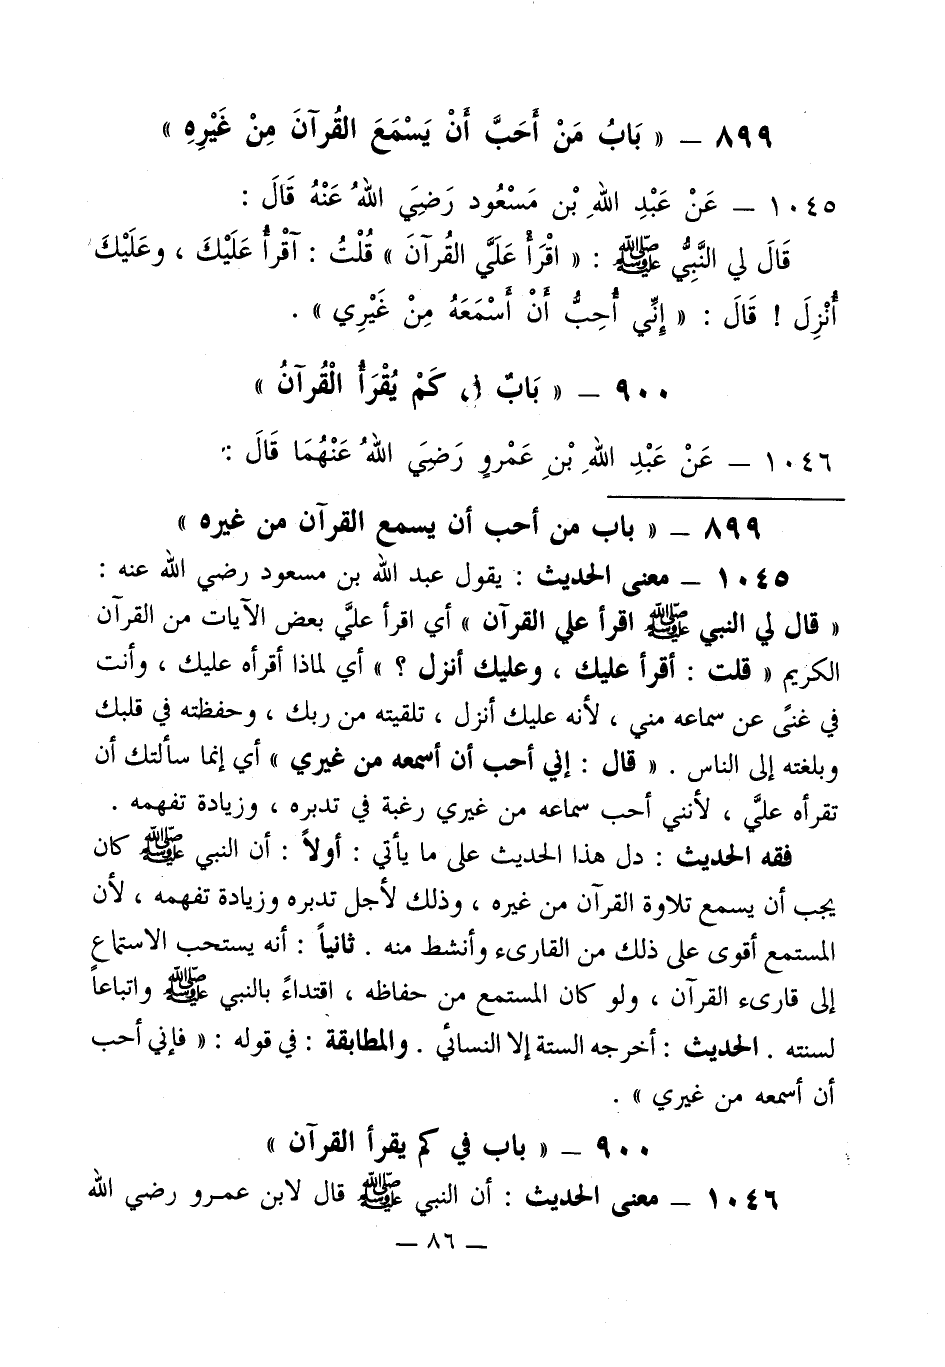 ٨٩٩ – « بَابُ مَنْ أَحَبَّ أَنْ يَسْمَعَ القُرآنَ مِنْ غَيْرِهِ »
١٠٤٥ – عَنْ عَبْدِ اللهِ بْنِ مَسْعُود رَضِيَ اللهُ عَنْهُ قَالَ :
قَالَ لي النَّبِيُّ ﷺ : « اقْرَأْ عَلَيَّ القُرآنَ » قُلْتُ : آقْرأُ عَلَيْكَ ، وعَلَيْكَ
أُنْزِلَ ! قَالَ : « إِنِّي أُحِبُّ أَنْ أَسْمَعَهُ مِنْ غَيْرِي » .
٩٠٠ – « بَابٌ كَمْ يُقْرَأُ الْقُرآنُ »
١٠٤٦ – عَنْ عَبْدِ اللهِ بْنِ عَمْرٍو رَضِيَ اللهُ عَنْهُمَا قَالَ :
٨٩٩ – « باب من أحب أن يسمع القرآن من غيره »
١٠٤٥ – معنى الحديث : يقول عبد الله بن مسعود رضي الله عنه :
« قال لي النبي ﷺ اقرأ علي القرآن » أي اقرأ عليَّ بعض الآيات من القرآن
الكريم « قلت : أقرأ عليك ، وعليك أنزل ؟ » أي لماذا أقرأه عليك ، وأنت
في غنىً عن سماعه مني ، لأنه عليك أنزل ، تلقيته من ربك ، وحفظته في قلبك
وبلغته إلى الناس . « قال : إني أحب أن أسمعه من غيري » أي إنما سألتك أن
تقرأه عليَّ ، لأنني أحب سماعه من غيري رغبة في تدبره ، وزيادة تفهمه .
فقه الحديث : دل هذا الحديث على ما يأتي : أولاً : أن النبي ﷺ كان
يحب أن يسمع تلاوة القرآن من غيره ، وذلك لأجل تدبره وزيادة تفهمه ، لأن
المستمع أقوى على ذلك من القارىء وأنشط منه . ثانياً : أنه يستحب الاستماع
إلى قارىء القرآن ، ولو كان المستمع من حفاظه ، اقتداءً بالنبي ﷺ واتباعاً
لسنته . الحديث : أخرجه الستة إلا النسائي . والمطابقة : في قوله : « فإني أحب
أن أسمعه من غيري » .
٩٠٠ – « باب في كم يقرأ القرآن »
١٠٤٦ – معنى الحديث : أن النبي ﷺ قال لابن عمرو رضي الله
– ٨٦ –